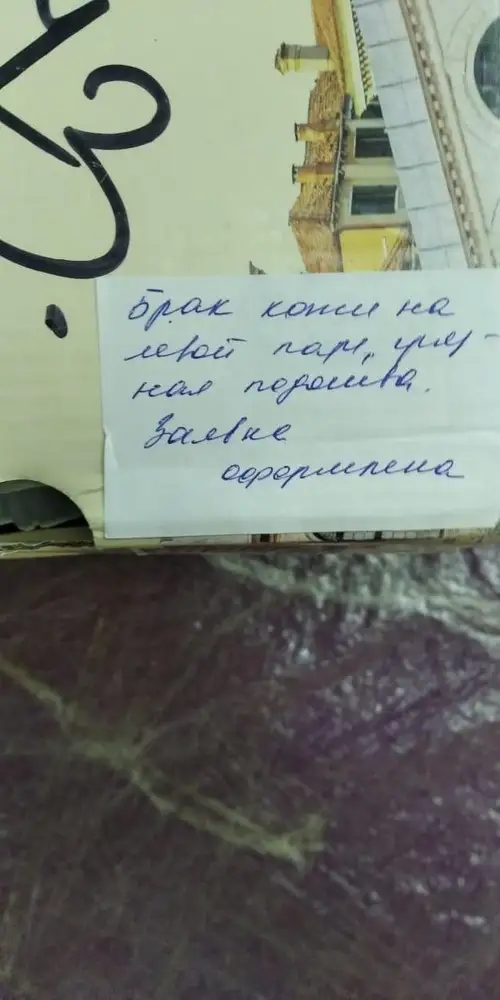 Брак кожи на
левой паре, гряз-
ная подошва.
Заявка
оформлена